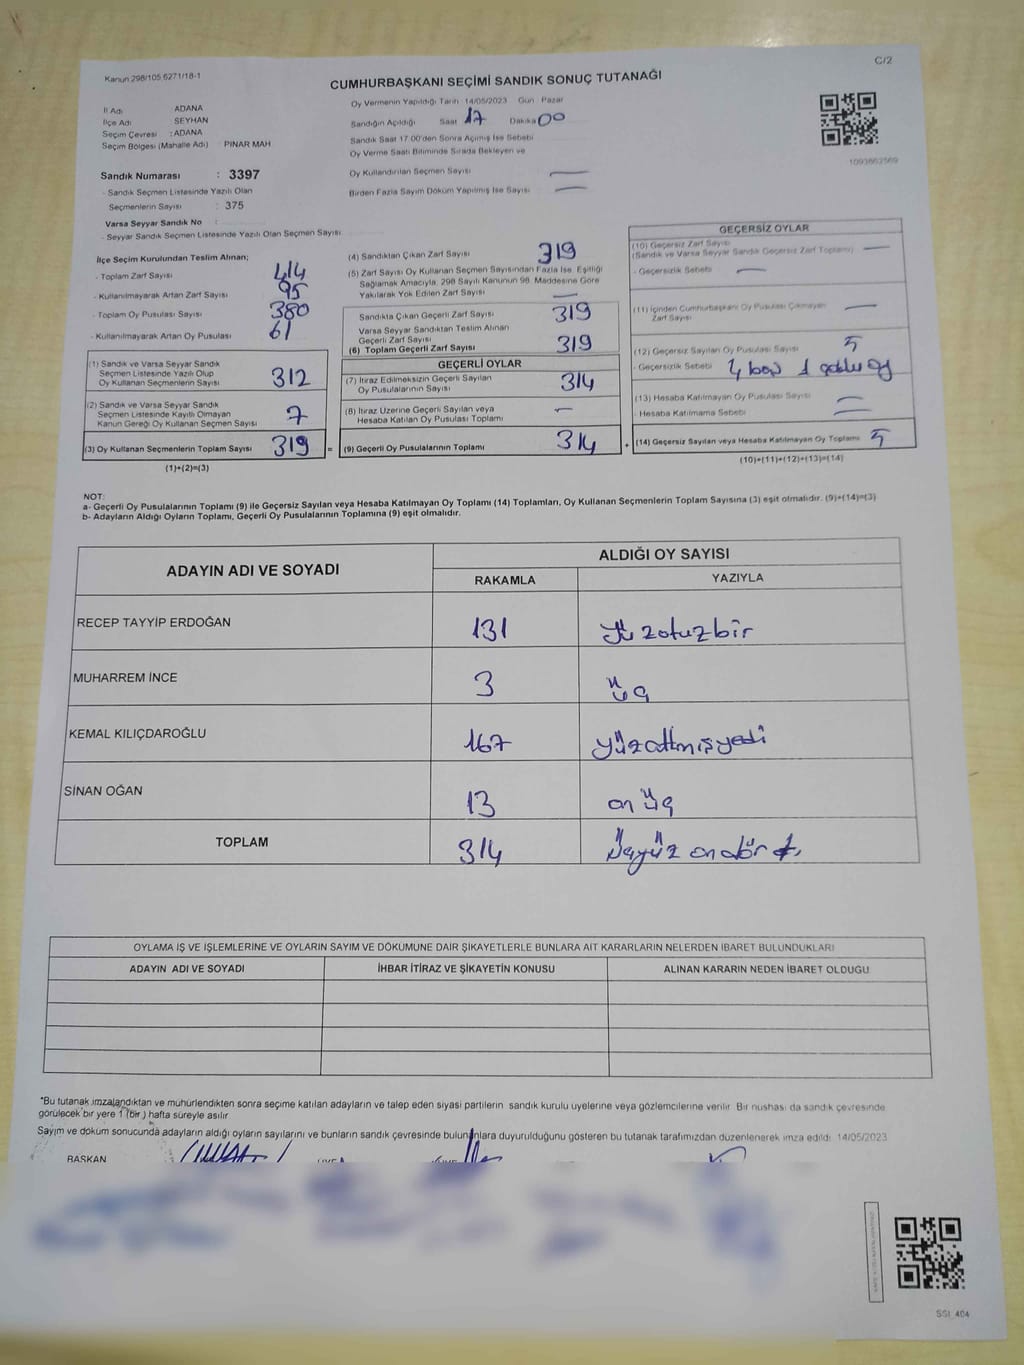 C/2
Kanun 298/105.6271/18-1
CUMHURBAŞKANI SEÇİMİ SANDIK SONUÇ TUTANAĞI
İl Adı : ADANA
İlçe Adı : SEYHAN
Seçim Çevresi : ADANA
Seçim Bölgesi (Mahalle Adı) : PINAR MAH
Sandık Numarası : 3397
- Sandık Seçmen Listesinde Yazılı Olan
Seçmenlerin Sayısı : 375
Varsa Seyyar Sandık No :
- Seyyar Sandık Seçmen Listesinde Yazılı Olan Seçmen Sayısı:
Oy Vermenin Yapıldığı Tarih 14/05/2023 Gün Pazar
Sandığın Açıldığı Saat 17 Dakika 00
Sandık Saat 17.00'den Sonra Açılmış İse Sebebi
Oy Verme Saati Bitiminde Sırada Bekleyen ve
Oy Kullandırılan Seçmen Sayısı —
Birden Fazla Sayım Döküm Yapılmış İse Sayısı —
1093663569
İlçe Seçim Kurulundan Teslim Alınan;
- Toplam Zarf Sayısı 414
- Kullanılmayarak Artan Zarf Sayısı 95
- Toplam Oy Pusulası Sayısı 380
- Kullanılmayarak Artan Oy Pusulası 61
(1) Sandık ve Varsa Seyyar Sandık
Seçmen Listesinde Yazılı Olup
Oy Kullanan Seçmenlerin Sayısı 312
(2) Sandık ve Varsa Seyyar Sandık
Seçmen Listesinde Kayıtlı Olmayan
Kanun Gereği Oy Kullanan Seçmen Sayısı 7
(3) Oy Kullanan Seçmenlerin Toplam Sayısı 319 =
(1)+(2)=(3)
(4) Sandıktan Çıkan Zarf Sayısı 319
(5) Zarf Sayısı Oy Kullanan Seçmen Sayısından Fazla İse, Eşitliği
Sağlamak Amacıyla, 298 Sayılı Kanunun 98. Maddesine Göre
Yakılarak Yok Edilen Zarf Sayısı —
Sandıkta Çıkan Geçerli Zarf Sayısı 319
Varsa Seyyar Sandıktan Teslim Alınan
Geçerli Zarf Sayısı
(6) Toplam Geçerli Zarf Sayısı 319
GEÇERLİ OYLAR
(7) İtiraz Edilmeksizin Geçerli Sayılan
Oy Pusulalarının Sayısı 314
(8) İtiraz Üzerine Geçerli Sayılan veya
Hesaba Katılan Oy Pusulası Toplamı —
(9) Geçerli Oy Pusulalarının Toplamı 314 +
GEÇERSİZ OYLAR
(10) Geçersiz Zarf Sayısı
(Sandık ve Varsa Seyyar Sandık Geçersiz Zarf Toplamı) —
- Geçersizlik Sebebi —
(11) İçinden Cumhurbaşkanı Oy Pusulası Çıkmayan
Zarf Sayısı —
(12) Geçersiz Sayılan Oy Pusulası Sayısı 5
- Geçersizlik Sebebi 4 boş 1 çoklu oy
(13) Hesaba Katılmayan Oy Pusulası Sayısı —
- Hesaba Katılmama Sebebi —
(14) Geçersiz Sayılan veya Hesaba Katılmayan Oy Toplamı 5
(10)+(11)+(12)+(13)=(14)
NOT:
a- Geçerli Oy Pusulalarının Toplamı (9) ile Geçersiz Sayılan veya Hesaba Katılmayan Oy Toplamı (14) Toplamları, Oy Kullanan Seçmenlerin Toplam Sayısına (3) eşit olmalıdır. (9)+(14)=(3)
b- Adayların Aldığı Oyların Toplamı, Geçerli Oy Pusulalarının Toplamına (9) eşit olmalıdır.
ADAYIN ADI VE SOYADI
ALDIĞI OY SAYISI
RAKAMLA YAZIYLA
RECEP TAYYİP ERDOĞAN 131 yüzotuzbir
MUHARREM İNCE 3 üç
KEMAL KILIÇDAROĞLU 167 yüzaltmışyedi
SİNAN OĞAN 13 on üç
TOPLAM 314 üçyüz on dört
OYLAMA İŞ VE İŞLEMLERİNE VE OYLARIN SAYIM VE DÖKÜMÜNE DAİR ŞİKAYETLERLE BUNLARA AİT KARARLARIN NELERDEN İBARET BULUNDUKLARI
ADAYIN ADI VE SOYADI İHBAR İTİRAZ VE ŞİKAYETİN KONUSU ALINAN KARARIN NEDEN İBARET OLDUĞU
*Bu tutanak imzalandıktan ve mühürlendikten sonra seçime katılan adayların ve talep eden siyasi partilerin sandık kurulu üyelerine veya gözlemcilerine verilir. Bir nushası da sandık çevresinde
görülecek bir yere 1 (bir ) hafta süreyle asılır
Sayım ve döküm sonucunda adayların aldığı oyların sayılarını ve bunların sandık çevresinde bulunanlara duyurulduğunu gösteren bu tutanak tarafımızdan düzenlenerek imza edildi. 14/05/2023
BAŞKAN
SSI_404